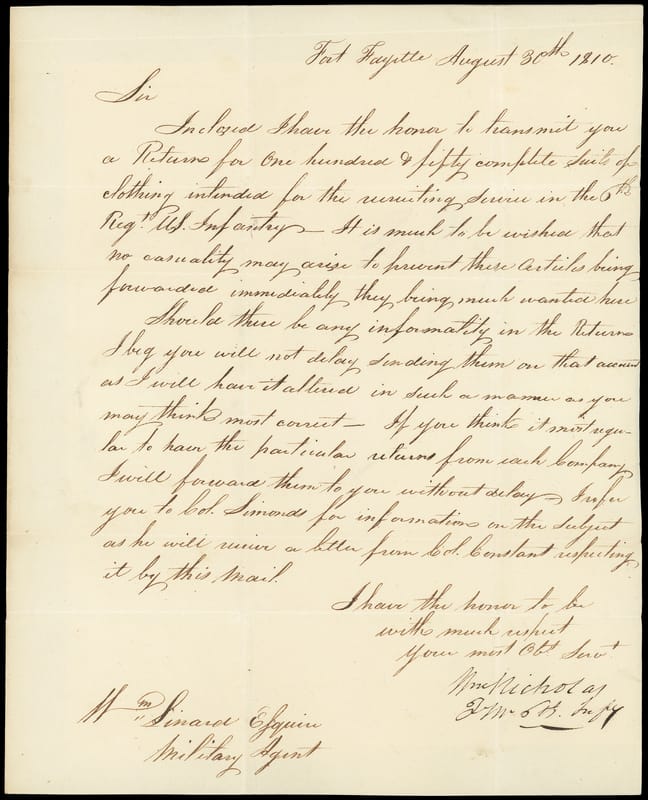 Fort Fayette August 30th 1810.
Sir
Inclosed I have the honor to transmit you
a Return for One hundred & fifty complete Suits of
clothing intended for the recruiting service in the 6th
Regt. U.S. Infantry — It is much to be wished that
no casuality may arise to prevent these articles being
forwarded immediately they being much wanted here
Should there be any informality in the Return
I beg you will not delay sending them on that account
as I will have it altered in such a manner as you
may think most correct — If you think it most regu-
lar to have the particular returns from each Company
I will forward them to you without delay I refer
you to Col. Simonds for information on the subject
as he will receive a letter from Col. Constant respecting
it by this Mail.
I have the honor to be
with much respect
your most Obt. Servt
Wm Nicholas
6th Infy
Wm Linard Esquire
Military Agent